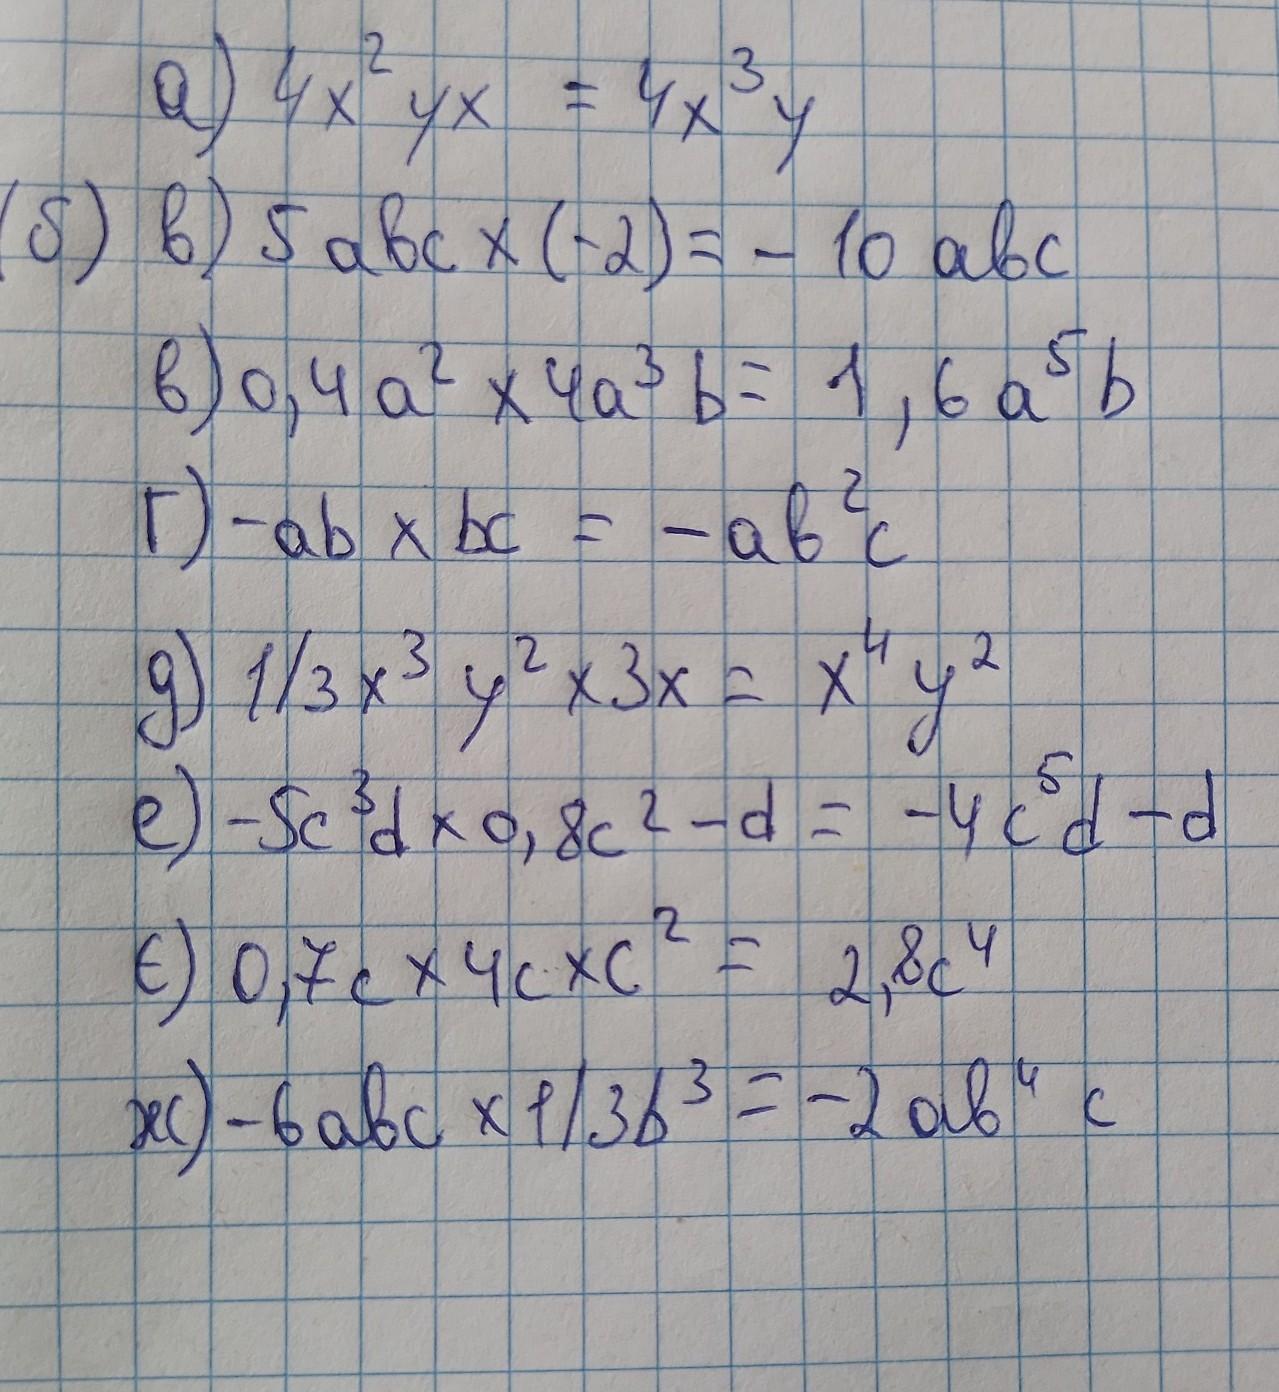 а) 4x²yx = 4x³y
(б) в) 5abc × (-2) = - 10 abc
в) 0,4a² × 4a³ b = 1,6 a⁵ b
г) -ab × bc = -ab²c
д) 1/3x³ y² × 3x = x⁴ y²
е) -5c³d × 0,8c² - d = -4c⁵d - d
є) 0,7c × 4c × c² = 2,8c⁴
ж) -6abc × 1/3b³ = -2ab⁴ c